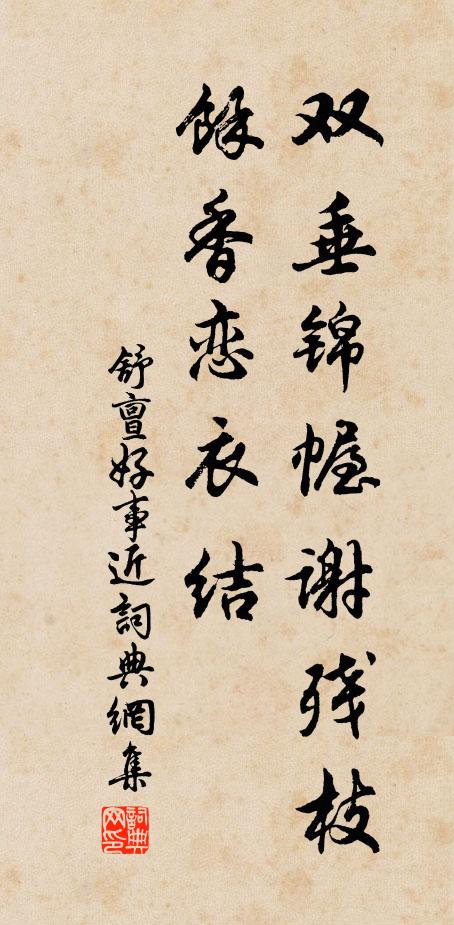 双垂锦幄谢残枝
馀香恋衣结
舒亶好事近詞典網集
詞典网印